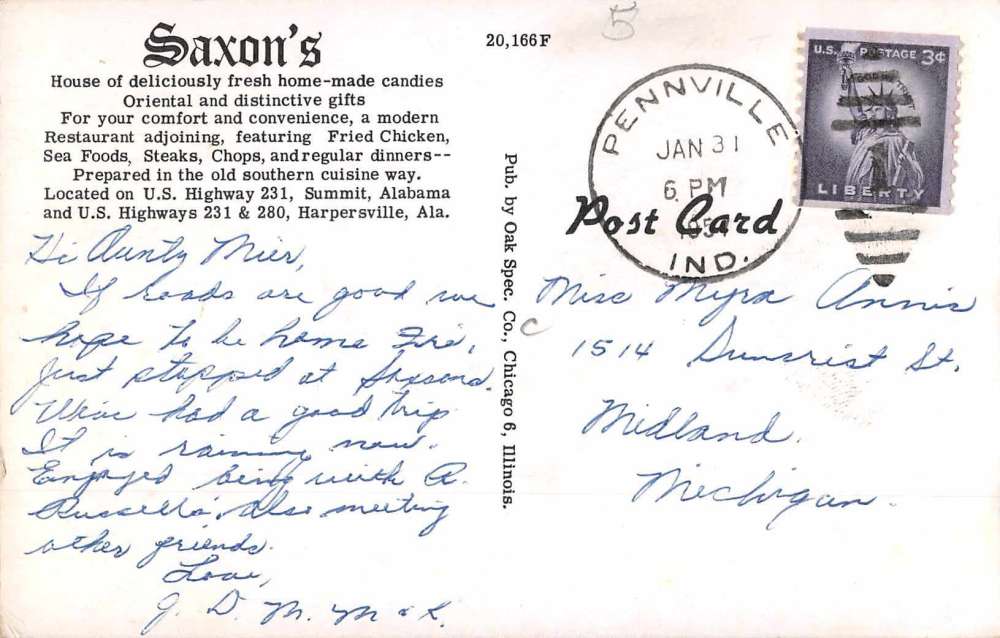 Saxon's
House of deliciously fresh home-made candies
Oriental and distinctive gifts
For your comfort and convenience, a modern
Restaurant adjoining, featuring Fried Chicken,
Sea Foods, Steaks, Chops, and regular dinners--
Prepared in the old southern cuisine way.
Located on U.S. Highway 231, Summit, Alabama
and U.S. Highways 231 & 280, Harpersville, Ala.
Hi Aunty Mier,
If roads are good we
hope to be home Fri,
Just stopped at Saxons.
We've had a good trip
It is raining now.
Enjoyed being with A.
Russells, also meeting
other friends.
Love,
J. D. M. M & K.
20,166F
5
Pub. by Oak Spec. Co., Chicago 6, Illinois.
C
PENNVILLE
JAN 31
6 PM
IND.
Post Card
U.S. POSTAGE 3¢
LIBERTY
Miss Myra Annis
1514 St.
Midland.
Michigan.